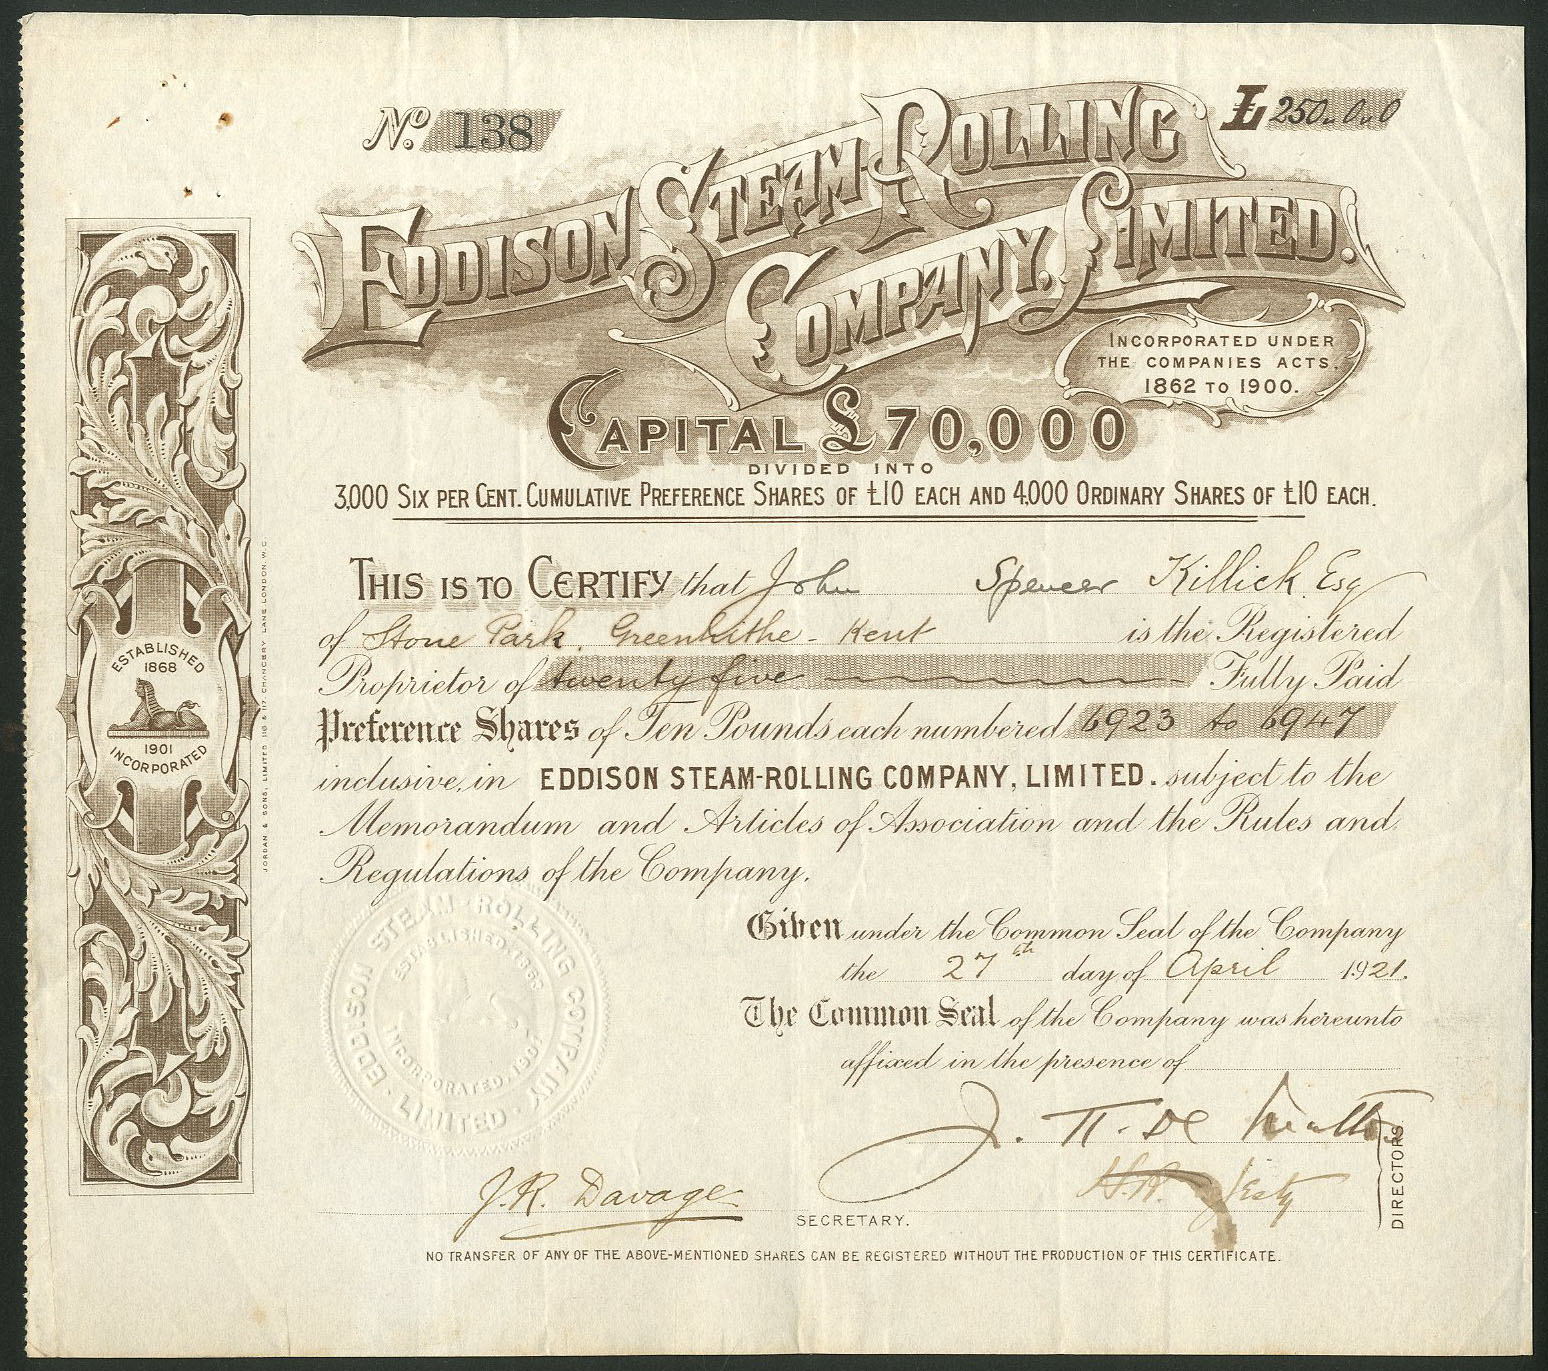 No. 138
£ 250 " 0 " 0
EDDISON STEAM-ROLLING
COMPANY, LIMITED.
INCORPORATED UNDER
THE COMPANIES ACTS.
1862 TO 1900.
CAPITAL £70,000
DIVIDED INTO
3,000 SIX PER CENT. CUMULATIVE PREFERENCE SHARES OF £10 EACH AND 4,000 ORDINARY SHARES OF £10 EACH.
THIS IS TO CERTIFY that John Spencer Killick Esq
of Stone Park, Greenhithe - Kent is the Registered
Proprietor of twenty five Fully Paid
Preference Shares of Ten Pounds each numbered 6923 to 6947
inclusive, in EDDISON STEAM-ROLLING COMPANY, LIMITED. subject to the
Memorandum and Articles of Association and the Rules and
Regulations of the Company.
Given under the Common Seal of the Company
the 27th day of April 1921.
The Common Seal of the Company was hereunto
affixed in the presence of
DIRECTORS.
J. R. Davage
SECRETARY.
NO TRANSFER OF ANY OF THE ABOVE-MENTIONED SHARES CAN BE REGISTERED WITHOUT THE PRODUCTION OF THIS CERTIFICATE.
ESTABLISHED
1868
1901
INCORPORATED
JORDAN & SONS, LIMITED 116 & 117 CHANCERY LANE LONDON. W.C.
EDDISON STEAM-ROLLING COMPANY
LIMITED
ESTABLISHED 1868
INCORPORATED 1901